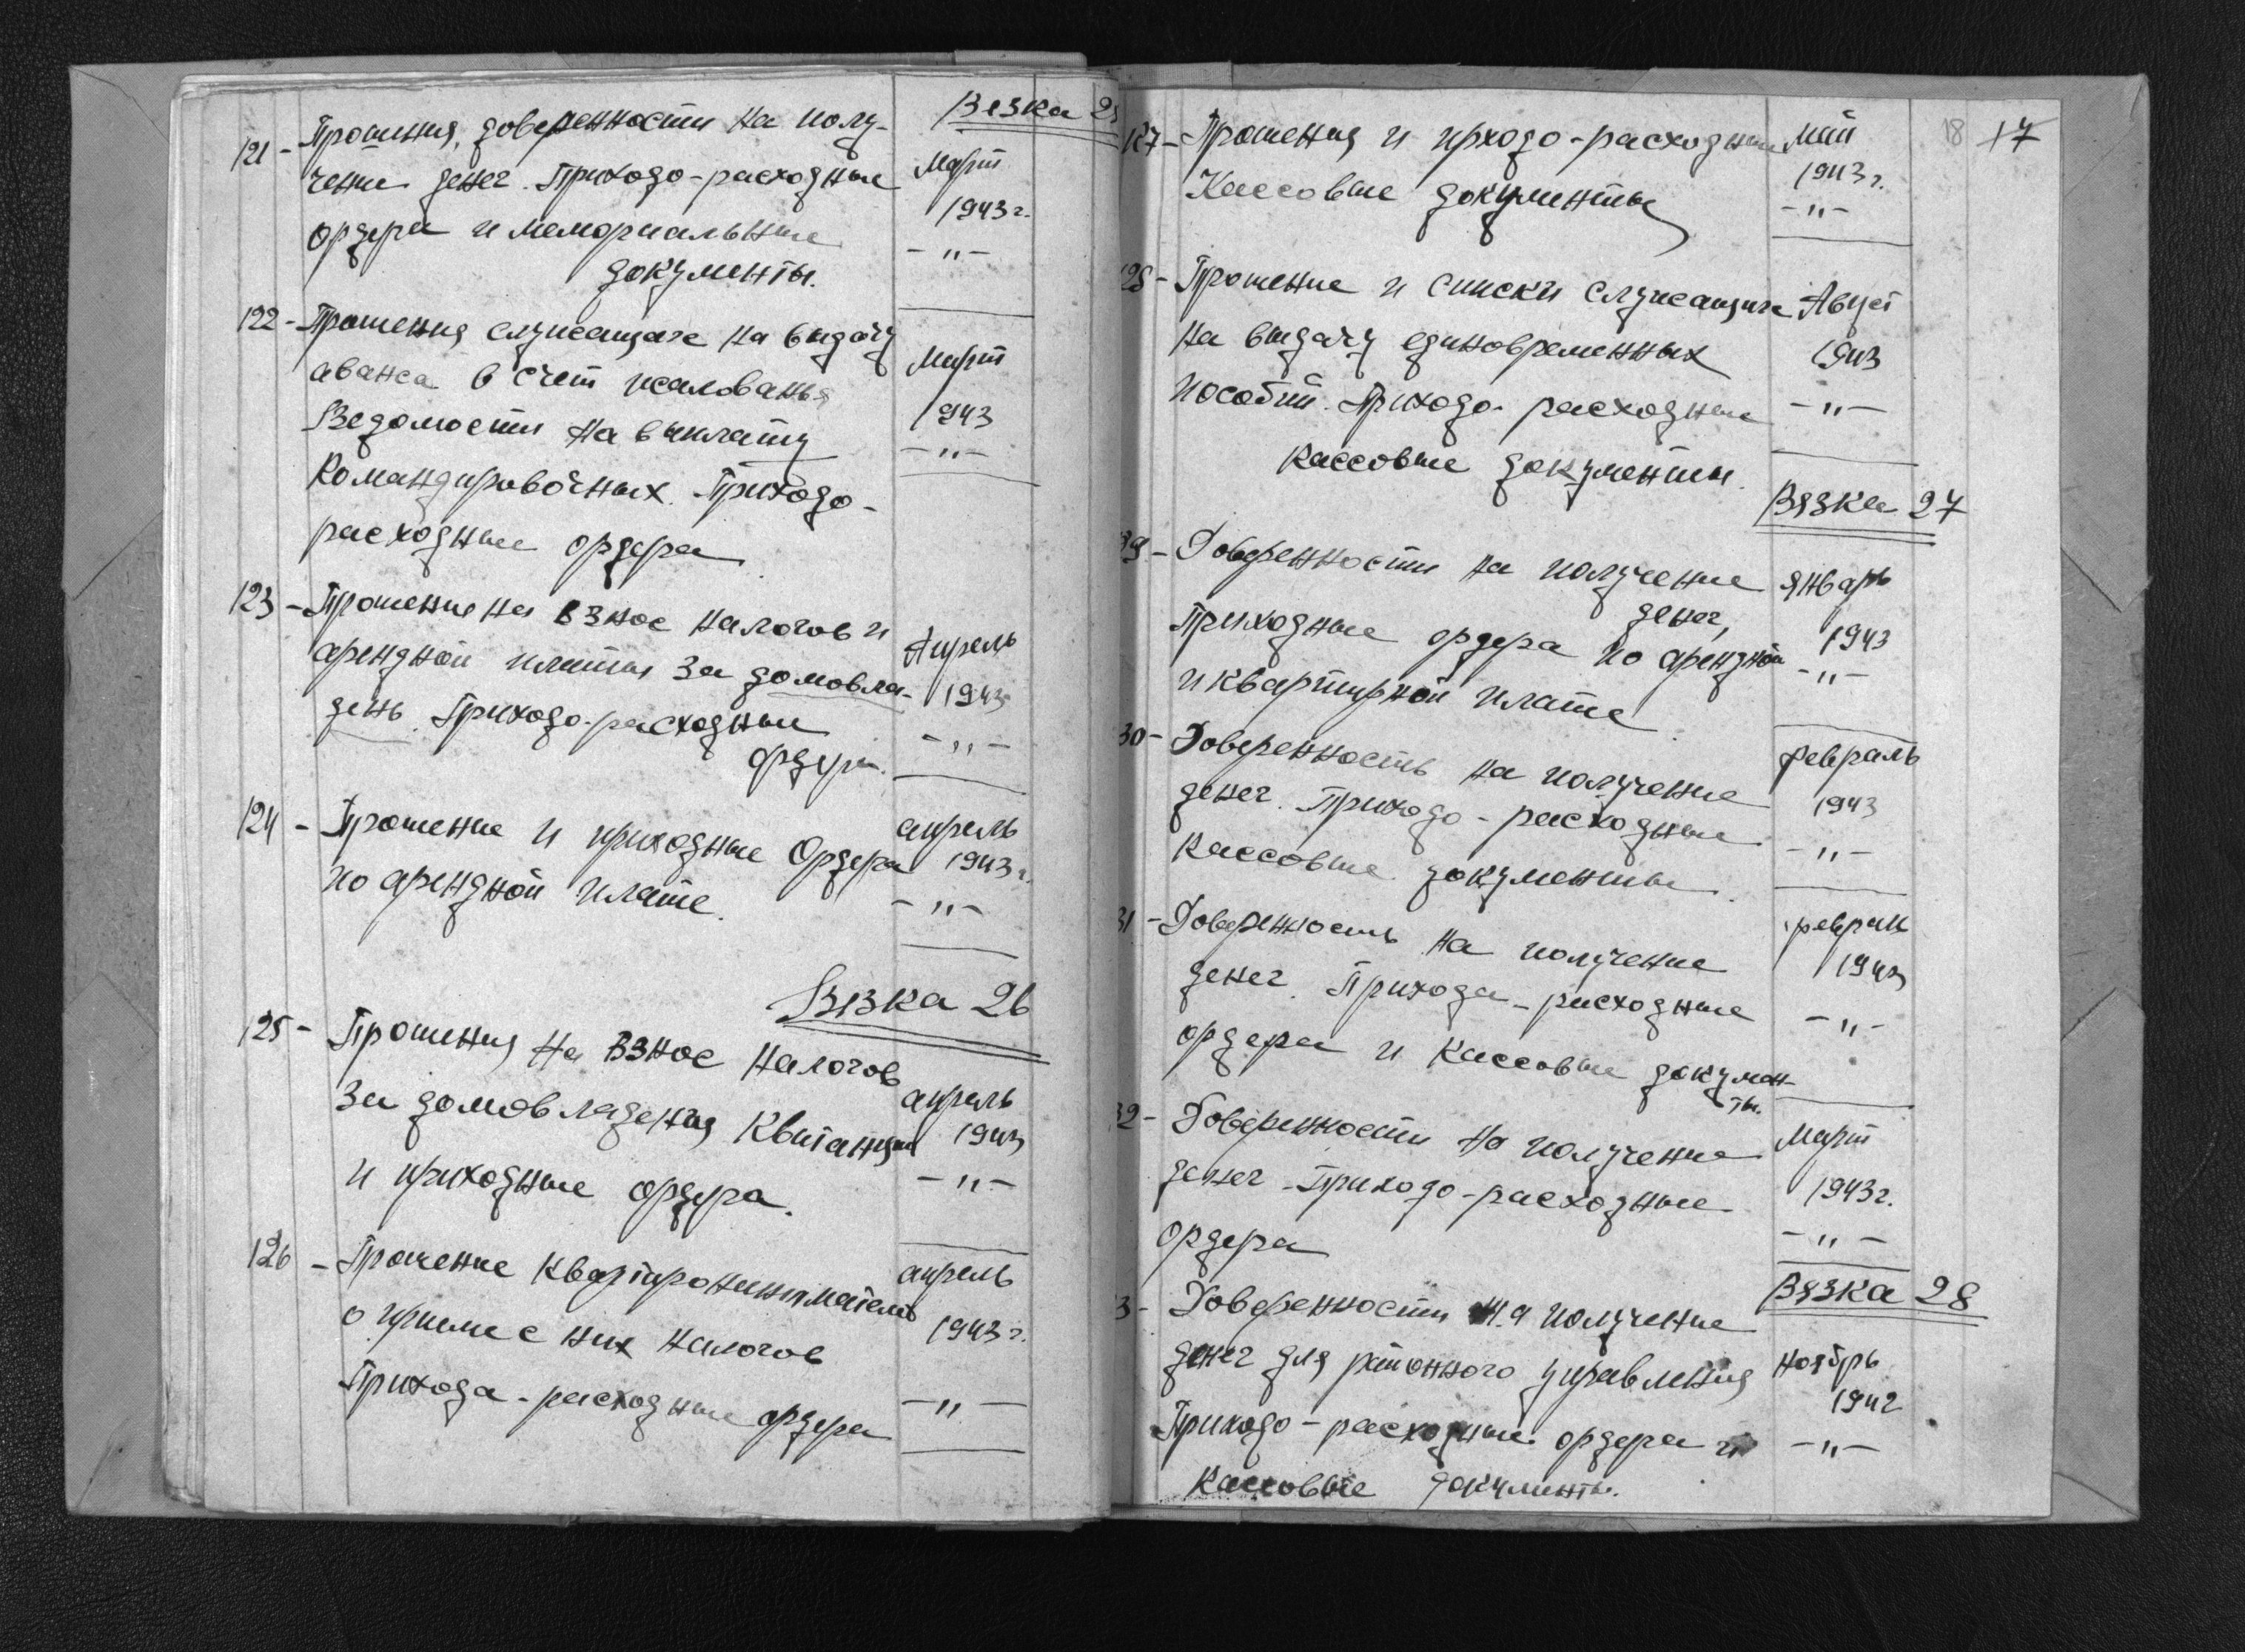 Везка 25
121 - Прошения, доверенности на полу-
чение денег. Приходо-расходные Март
ордера и мемориальные 1943 г.
документы. - " -
122 - Прошения служащих на выдачу
аванса в счет жалованья Март
Ведомости на выплату 1943
Командировочных. Приходо- - " -
расходные ордера
123 - Прошение на взнос налогов и
арендной платы за домовла- Апрель
день. Приходо-расходные 1943
ордера. - " -
124 - Прошение и приходные Ордера апрель
по арендной плате. 1943 г.
- " -
Вязка 26
125 - Прошения на взнос налогов
за домовладения Квитанции апрель
и приходные ордера. 1943
- " -
126 - Прошение Квартиронанимателей апрель
о приеме с них налогов 1943 г.
Прихода-расходные ордера - " -
18 17
127 - Прошения и прходо-расходные Май
Кассовые документы 1943 г.
- " -
28 - Прошение и списки служащих Август
на выдачу единовременных 1943
пособий. Приходо-расходные - " -
кассовые документы.
Вязка 27
29 - Доверенности на получение январь
денег,
Приходные ордера по арендной 1943
и квартирной плате - " -
30 - Доверенность на получение февраль
денег. Приходо-расходные 1943
Кассовые документы. - " -
31 - Доверенность на получение феврал
денег. Прихода-расходные 1943
ордера и кассовые докумен- - " -
ты.
32 - Доверенности на получение Март
денег. Приходо-расходные 1943 г.
ордера - " -
Вязка 28
3 - Доверенности на получение
денег для районного управления ноябрь
Приходо-расходные ордера и 1942
Кассовые документы. - " -